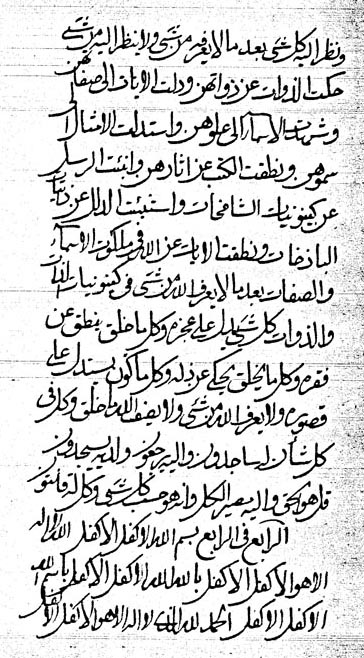 ونظر اليه كل شئ بعد ما لا يعرفه من شئ ولا ينظر اليه من شئ
حكت الذوات عن ذواتهن ودلت الايات الى صفاتهن
وشهدت الاسماء الى علوهن واستدلت الامثال الى
سموهن ونطقت الكتب عن اثارهن وانبئت الرسل
عن كينونيات الشامخات واستنبئت الدلل عن
الباذخات ونطقت الايات عن الله في ملكوت الاسماء
والصفات بعد ما لا يعرف الله من شئ في كينونيات
والذوات كل شئ يدل على عجزه وكل ما خلق ينطق عن
فقره وكل ما يخلق يحكي عن ذله وكل ما كون يستدل على
قصوره ولا يعرف الله من شئ ولا يصف الله ما خلق وكل في
كل شأن له ساجدون واليه يرجعون ولديه يسجدون
قل هو الحق واليه مصير الكل وانه هو حسب كل شئ وكل له قانتون
الرابع في الرابع بسم الله الاكفل الاكفل الله لا اله
الا هو الاكفل الاكفل بالله الله الاكفل الاكفل باسم الله
الاكفل الاكفل الحمد لله الذي لا اله الا هو الاكفل الاكفل